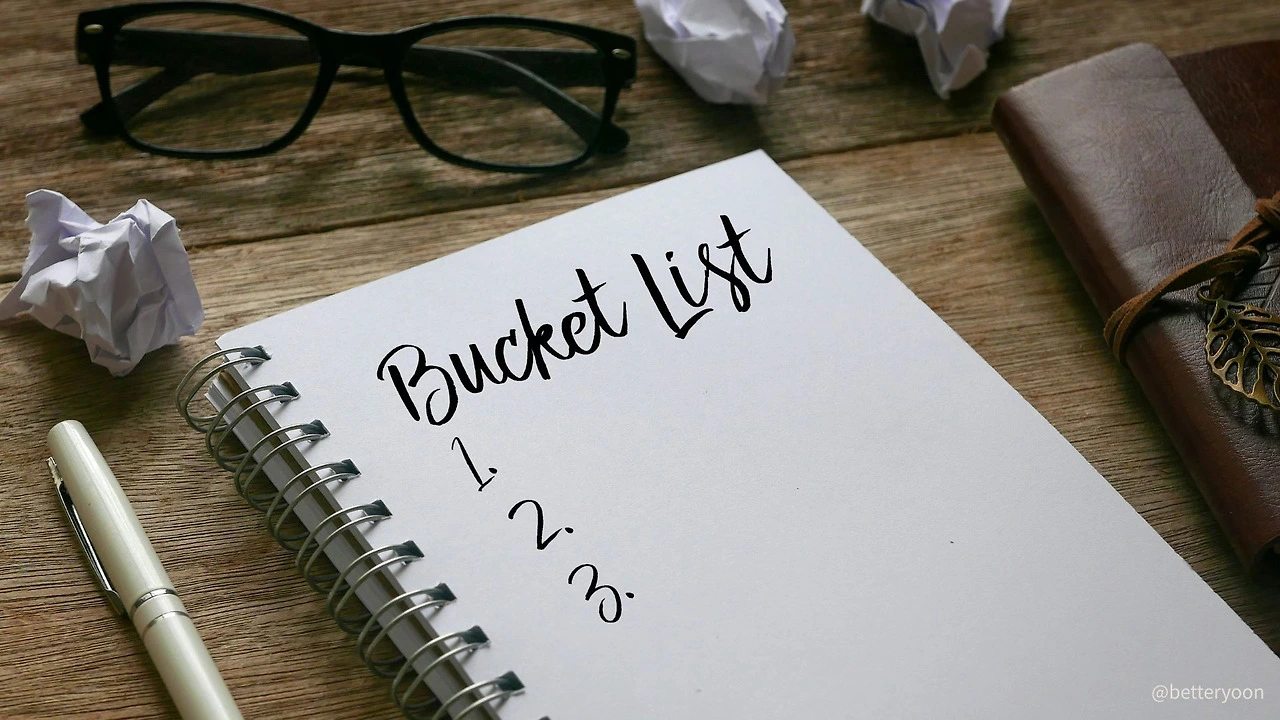 Bucket List
1.
2.
3.
@betteryoon